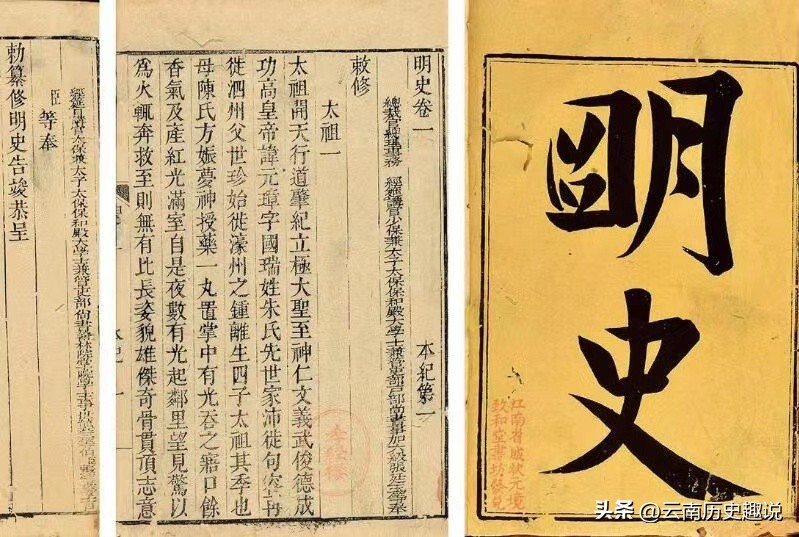 朙史
江南省城狀元境
致和堂書坊發兌
明史卷一 本紀第一
總裁官總理事務 經筵講官少保兼太子太保保和殿大學士兼管吏部戶部尚書事加六級張廷玉等奉
敕修
太祖一
太祖開天行道肇紀立極大聖至神仁文義武俊德成
功高皇帝諱元璋字國瑞姓朱氏先世家沛徙句容再
徙泗州父世珍始徙濠州之鍾離生四子太祖其季也
母陳氏方娠夢神授藥一丸置掌中有光吞之寤口餘
香氣及產紅光滿室自是夜數有光起鄰里望見驚以
為火輒奔救至則無有比長姿貌雄傑奇骨貫頂志意
經筵日講官太保兼太子太保保和殿大學士兼管吏部尚書翰林院掌院學士事世襲三等伯
臣 等奉
勅纂修明史告竣恭呈
头条 @云南历史趣说